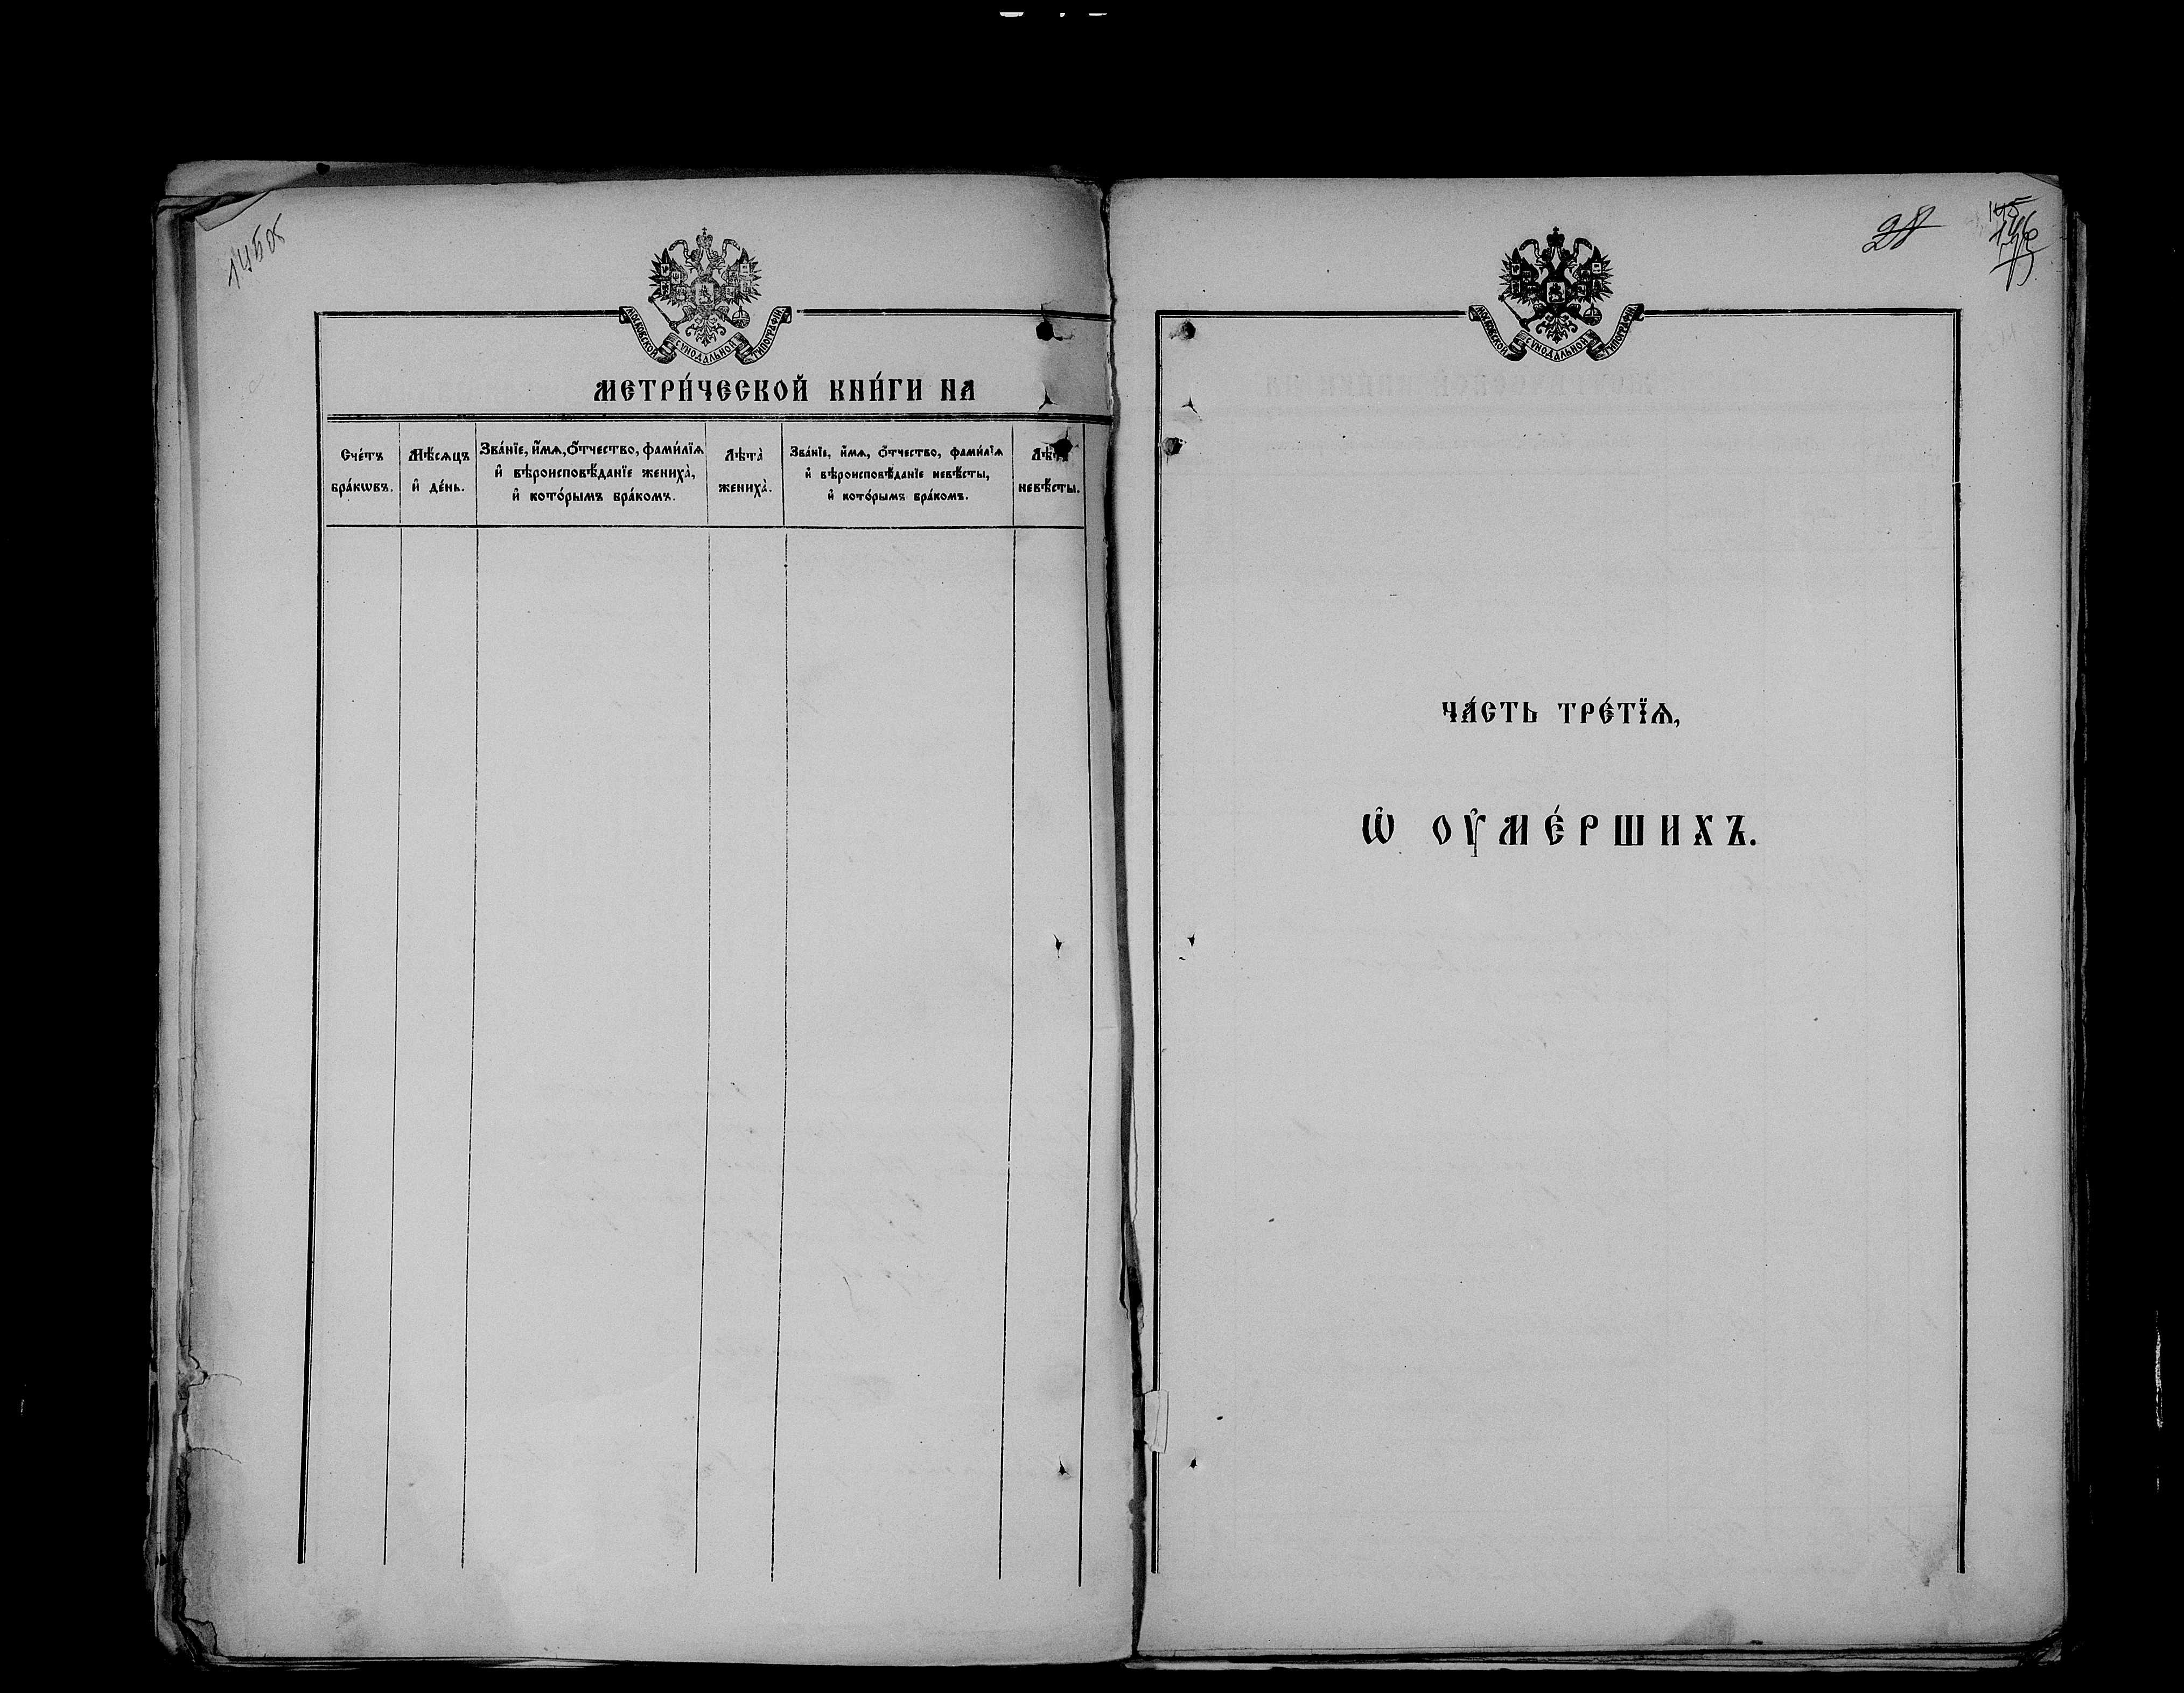 145об
МОСКОВСКОЙ СѴНОДАЛЬНОЙ ТИПОГРАФІИ
МЕТРИ́ЧЕСКОЙ КНИ́ГИ НА
Сче́тъ бра́кѡвъ.
Мѣ́сѧцъ и҆ де́нь.
Зва́нїе, и҆́мѧ, ѻ҆́тчество, фами́лїѧ
и҆ вѣроисповѣ́данїе жениха̀,
и҆ кото́рымъ бра́комъ.
Лѣта̀ жениха̀.
Зва́нїе, и҆́мѧ, ѻ҆́тчество, фами́лїѧ
и҆ вѣроисповѣ́данїе невѣ́сты,
и҆ кото́рымъ бра́комъ.
невѣ́сты.
28
145
146
МОСКОВСКОЙ СѴНОДАЛЬНОЙ ТИПОГРАФІИ
ЧА́СТЬ ТРЕ́ТЇѦ,
Ѡ҆ ОУ҆МЕ́РШИХЪ.